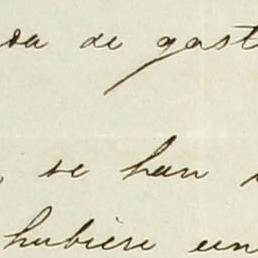 de gast
, se han
hubiere un